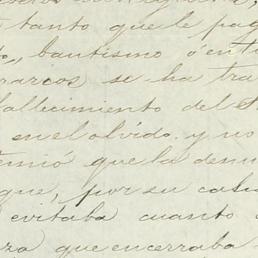 tanto que le pag
bautismo ó ent
marcos se ha tra
fallecimiento del
en el olvido. y no
temió que la denu
que, por su calid
evitaba cuanto
que encerraba